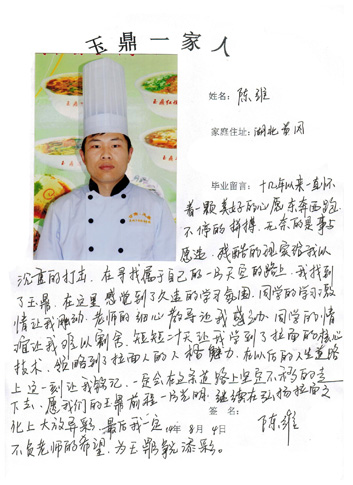 玉鼎一家人
姓名：陈维
家庭住址：湖北黄冈
毕业留言：十几年以来一直怀
着一颗美好的心愿东奔西跑
不停的拼搏，无奈的是事与
愿违，残酷的现实给我以
沉重的打击，在寻找属于自己的一片天空的路上，我找到
了玉鼎，在这里感觉到了久违的学习氛围，同学的学习激
情让我触动，老师的细心教导让我感动，同学的情
难让我难以割舍，短短一天让我学到了拉面的核心
技术，领略到了拉面人的人格魅力，在以后的人生道路
上这一刻让我铭记，一定会在这条道路上坚定不移的走
下去，愿我们的玉鼎前程一片光明，继续在弘扬拉面文
化上大放异彩，最后我一定
签名：
陈维
年8月4日
不负老师的希望，为玉鼎锦添彩。